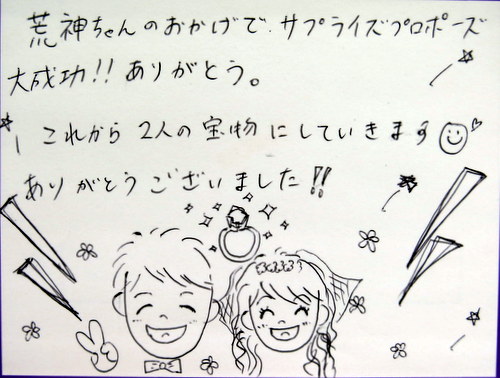 荒神ちゃんのおかげで、サプライズプロポーズ
大成功!!ありがとう。
これから2人の宝物にしていきます
ありがとうございました!!